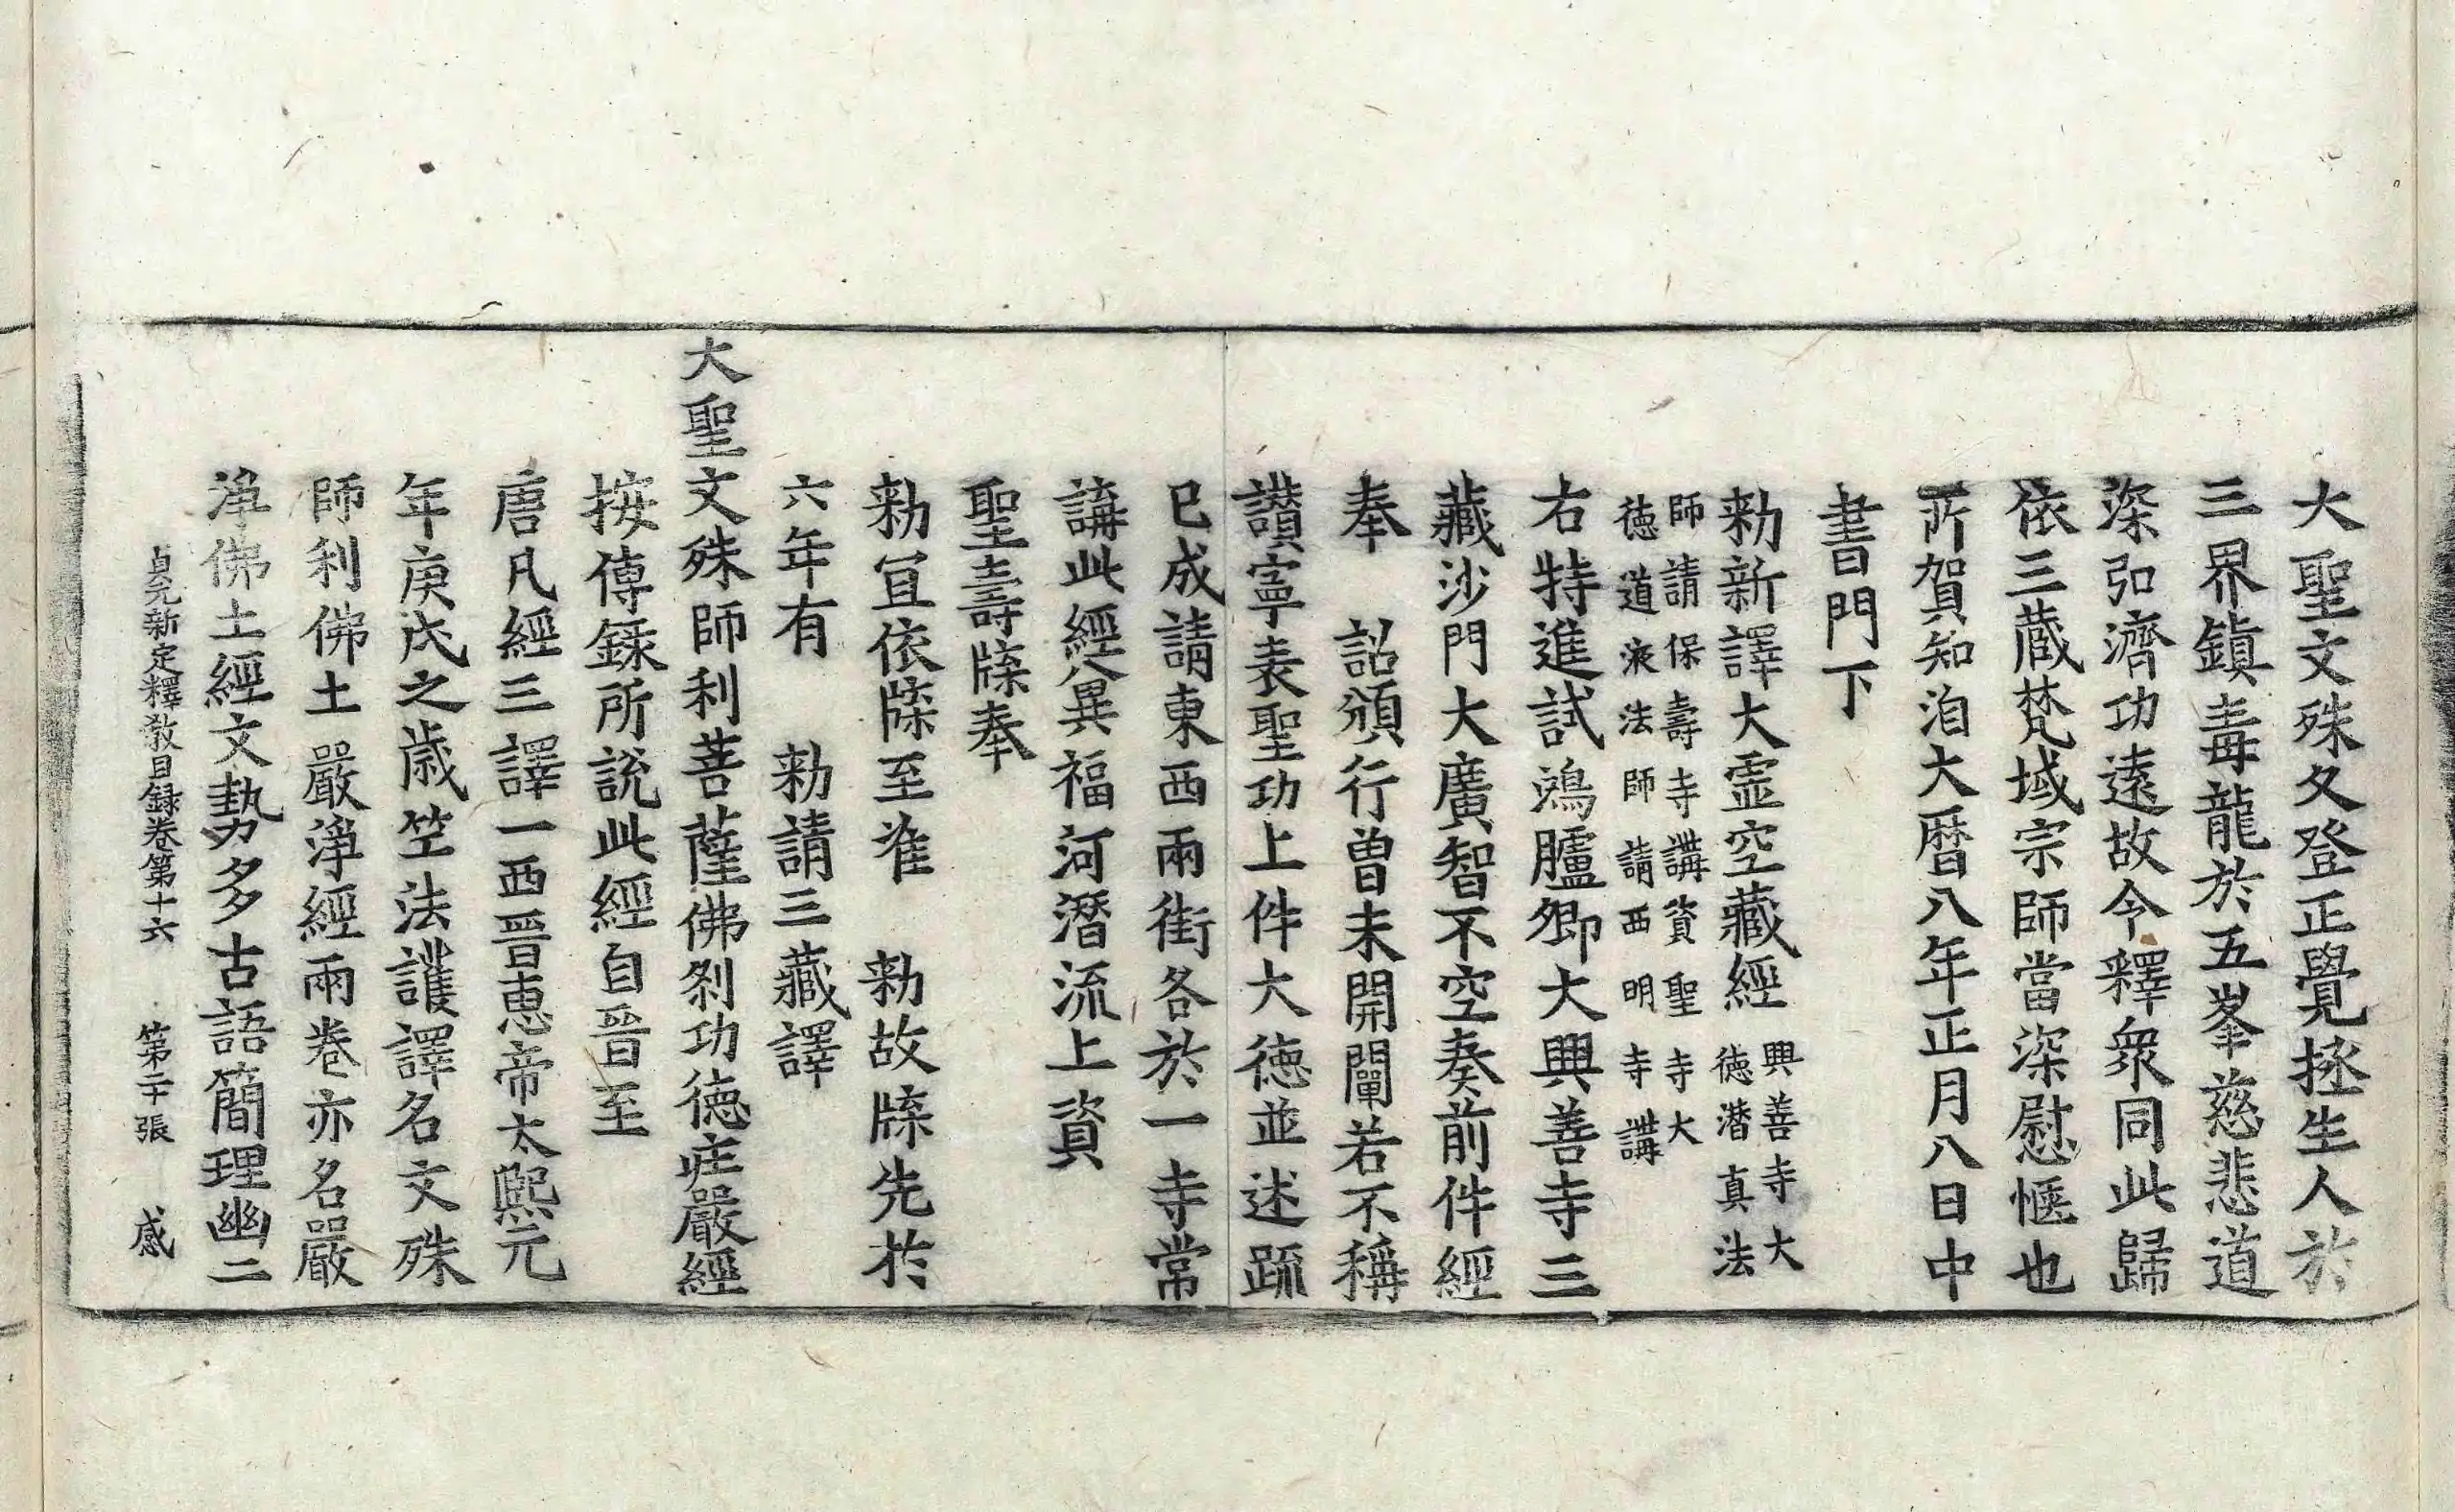 大聖文殊久登正覺拯生人於
三界鎮毒龍於五峯慈悲道
深弘濟功遠故令釋衆同此歸
依三藏梵域宗師當深慰惬也
所賀知洎大曆八年正月八日中
書門下
勑新譯大霊空藏經興善寺大德潛真法
師請保壽寺講資聖寺大
德道液法師請西明寺講
右特進試鴻臚卿大興善寺三
藏沙門大廣智不空奏前件經
奉　詔頒行曽未開闡若不稱
讃寧表聖功上件大德並述䟽
已成請東西兩街各於一寺常
講此經兾福河潛流上資
聖壽牒奉
勑冝依牒至准　勑故牒先於
六年有　勑請三藏譯
大聖文殊師利菩薩佛刹功德莊嚴經
按傳録所說此經自晉至
唐凡經三譯一西晉惠帝太熙元
年庚戌之歲竺法護譯名文殊
師利佛土嚴淨經兩卷亦名嚴
淨佛土經文勢多古語簡理幽二
貞元新定釋教目録卷第十六　第二十張　感